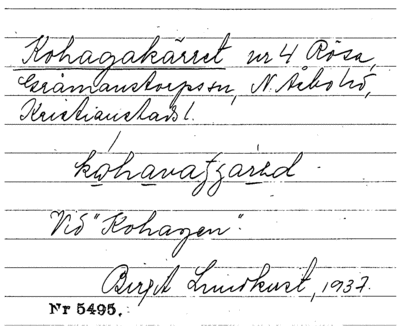 Kohagakärret nr 4 Rösa,
Gråmanstorps sn, N. Åsbo hd,
Kristianstads l.
Vid "Kohagen".
Birgit Lundkvist, 1937.
Nr 5495.